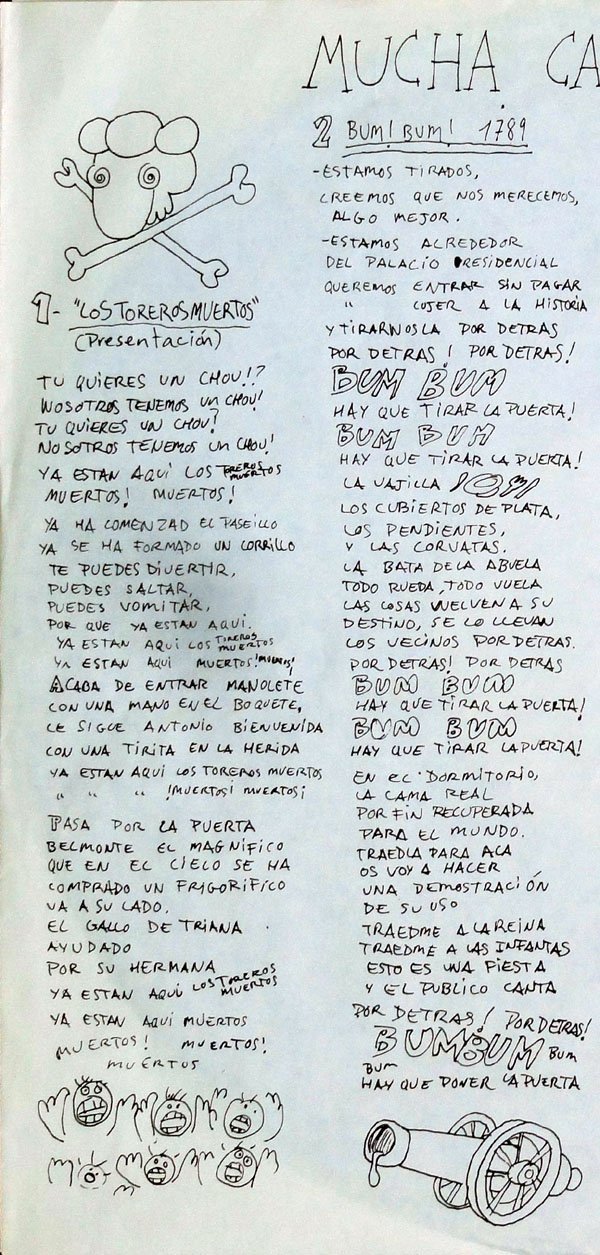 MUCHA CA
1- "LOS TOREROS MUERTOS"
(Presentación)
TU QUIERES UN CHOU!?
NOSOTROS TENEMOS UN CHOU!
TU QUIERES UN CHOU?
NOSOTROS TENEMOS UN CHOU!
YA ESTAN AQUI LOS TOREROS MUERTOS
MUERTOS! MUERTOS!
YA HA COMENZAD EL PASEILLO
YA SE HA FORMADO UN CORRILLO
TE PUEDES DIVERTIR,
PUEDES SALTAR,
PUEDES VOMITAR,
POR QUE YA ESTAN AQUI.
YA ESTAN AQUI LOS TOREROS MUERTOS
YA ESTAN AQUI MUERTOS! MUERTOS!
ACABA DE ENTRAR MANOLETE
CON UNA MANO EN EL BOQUETE,
LE SIGUE ANTONIO BIENVENIDA
CON UNA TIRITA EN LA HERIDA
YA ESTAN AQUI LOS TOREROS MUERTOS
" " " ¡MUERTOS! MUERTOS¡
PASA POR LA PUERTA
BELMONTE EL MAGNIFICO
QUE EN EL CIELO SE HA
COMPRADO UN FRIGORIFICO
VA A SU LADO.
EL GALLO DE TRIANA
AYUDADO
POR SU HERMANA
YA ESTAN AQUI LOS TOREROS MUERTOS
YA ESTAN AQUI MUERTOS
MUERTOS! MUERTOS!
MUERTOS
2 BUM! BUM! 1789
-ESTAMOS TIRADOS,
CREEMOS QUE NOS MERECEMOS,
ALGO MEJOR.
-ESTAMOS ALREDEDOR
DEL PALACIO PRESIDENCIAL
QUEREMOS ENTRAR SIN PAGAR
" COJER A LA HISTORIA
Y TIRARNOSLA POR DETRAS
POR DETRAS! POR DETRAS!
BUM BUM
HAY QUE TIRAR LA PUERTA!
BUM BUM
HAY QUE TIRAR LA PUERTA!
LA VAJILLA
LOS CUBIERTOS DE PLATA,
LOS PENDIENTES,
Y LAS CORVATAS.
LA BATA DE LA ABUELA
TODO RUEDA, TODO VUELA
LAS COSAS VUELVEN A SU
DESTINO, SE LO LLEVAN
LOS VECINOS POR DETRAS.
POR DETRAS! POR DETRAS
BUM BUM
HAY QUE TIRAR LA PUERTA!
BUM BUM
HAY QUE TIRAR LA PUERTA!
EN EL DORMITORIO,
LA CAMA REAL
POR FIN RECUPERADA
PARA EL MUNDO.
TRAEDLA PARA ACA
OS VOY A HACER
UNA DEMOSTRACIÓN
DE SU USO
TRAEDME A LA REINA
TRAEDME A LAS INFANTAS
ESTO ES UNA FIESTA
Y EL PUBLICO CANTA
POR DETRAS! POR DETRAS!
BUM BUM BUM
BUM
HAY QUE PONER LA PUERTA